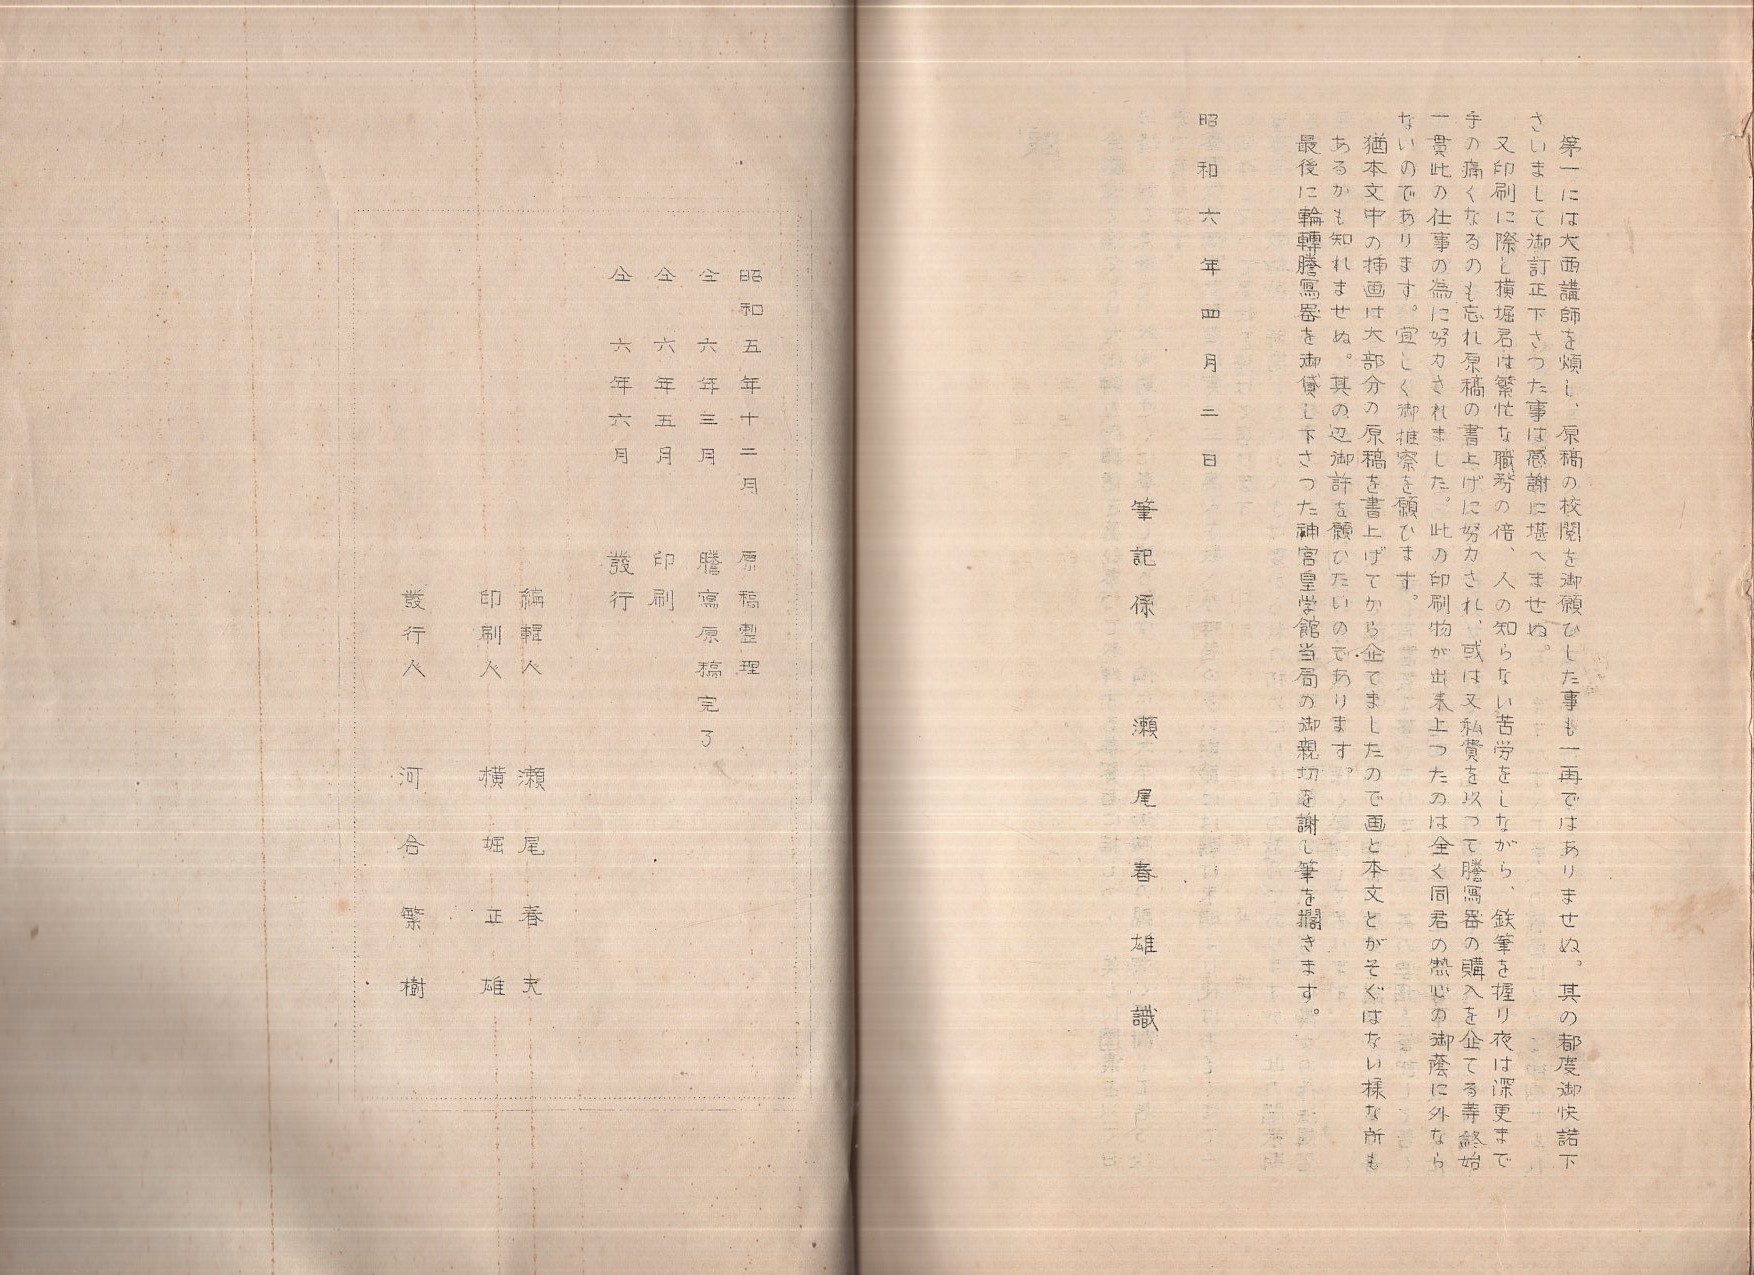 第一には大西講師を煩し、原稿の校閲を御願ひした事も一再ではありませぬ。其の都度御快諾下
さいまして御訂正下さつた事は感謝に堪へませぬ。
又印刷に際し横堀君は繁忙な職務の倍、人の知らない苦労をしながら、鉄筆を握り夜は深更まで
手の痛くなるのも忘れ原稿の書上げに努力され、或は又私費を以つて謄寫器の購入を企てる等終始
一貫此の仕事の為に努力されました。此の印刷物が出来上つたのは全く同君の熱心の御蔭に外なら
ないのであります。宜しく御推察を願ひます。
猶本文中の挿画は大部分の原稿を書上げてから企てましたので画と本文とがそぐはない様な所も
あるかも知れませぬ。其の辺御許を願ひたいのであります。
最後に輪轉謄寫器を御貸し下さつた神宮皇学館当局の御親切を謝し筆を擱きます。
昭和六年四月二日
筆記係 瀬尾春雄識
昭和五年十二月 原稿整理
仝 六年三月 謄寫原稿完了
仝 六年五月 印刷
仝 六年六月 發行
編輯人 瀬尾春夫
印刷人 横堀正雄
發行人 河合繁樹